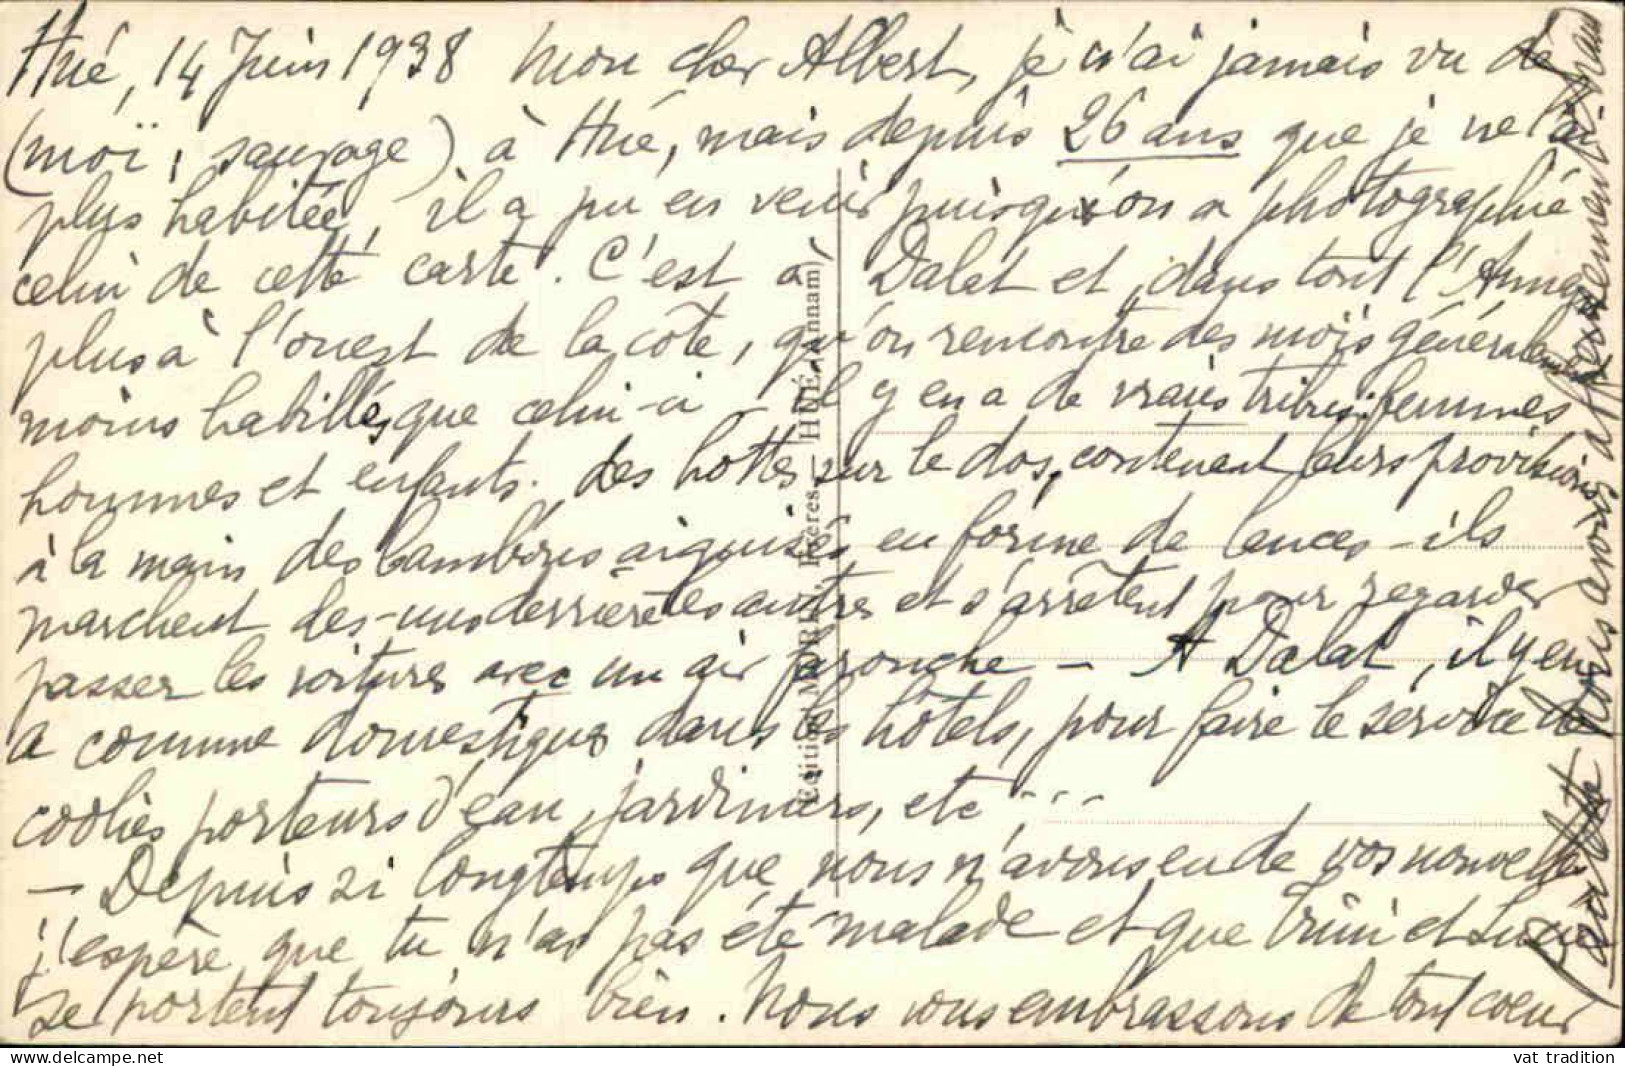 Hué, 14 Juin 1938 Mon cher Albert, je n'ai jamais vu de
(moï : sauvage) à Hué, mais depuis 26 ans que je ne l'ai
plus habitée, il a pu en venir puisqu'on a photographié
celui de cette carte. C'est à Dalat et, dans tout l'Annam
plus à l'ouest de la côte, qu'on rencontre des moïs généralement
moins habillés que celui-ci – il y en a de vraies tribus : femmes,
hommes et enfants. Des hottes sur le dos, contenant leurs provisions
à la main des bambous aiguisés en forme de lances – ils
marchent les uns derrière les autres et s'arrêtent pour regarder
passer les voitures avec un air farouche – A Dalat, il y en
a comme domestiques dans les hôtels, pour faire le service de
coolies porteurs d'eau, jardiniers, etc...
– Depuis si longtemps que nous n'avons eu de vos nouvelles
j'espère que tu n'as pas été malade et que Mimi et
se portent toujours bien. Nous vous embrassons de tout coeur
Nous avons affreusement
Edition MORIN, Frères – HUÉ (Annam)
vat tradition